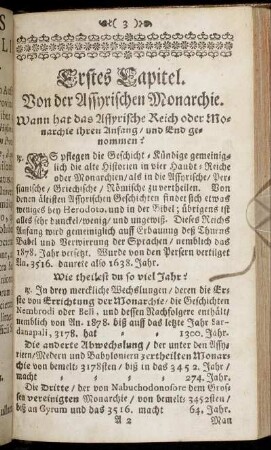 3
Erstes Capitel.
Von der Assyrischen Monarchie.
Wann hat das Assyrische Reich oder Mo-
narchie ihren Anfang / und End ge-
nommen?
ES pflegen die Geschicht-Kündige gemeinig-
lich die alte Historien in vier Haubt-Reiche
oder Monarchien / als in die Assyrische / Per-
sianische / Griechische / Römische zu vertheilen. Von
denen ältesten Assyrischen Geschichten findet sich etwas
weniges bey Herodoto, und in der Bibel; übrigens ist
alles sehr dunckel / wenig / und ungewiß. Dieses Reichs
Anfang wird gemeiniglich auff Erbauung deß Thurns
Babel und Verwirrung der Sprachen / nemblich das
1878. Jahr versetzt. Wurde von den Persern vertilget
An. 3516. daurete also 1638. Jahr.
Wie theilest du so viel Jahr?
In drey merckliche Wechslungen / deren die Er-
ste von Errichtung der Monarchie / die Geschichten
Nembrodi oder Beli, und dessen Nachfolgere enthält /
nemblich von An. 1878. biß auff das letzte Jahr Sar-
danapali, 3178. hat 1300. Jahr.
Die anderte Abwechslung / der unter den Assy-
riern / Medern und Babyloniern zertheilten Monar-
chie von bemelt: 3178sten / biß in das 3452. Jahr /
macht 274. Jahr.
Die Dritte / der von Nabuchodonosore dem Gros-
sen vereinigten Monarchie / von bemelt: 3452sten /
biß an Cyrum und das 3516. macht 64. Jahr.
A 2 Man